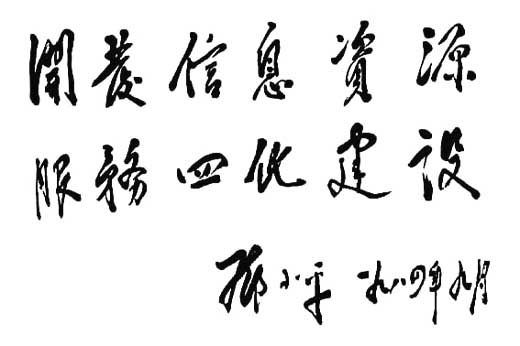 開發信息資源
服務四化建设
鄧小平 一九八四年九月